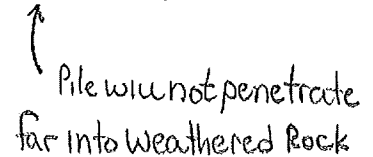 Pile will not penetrate
far into weathered Rock